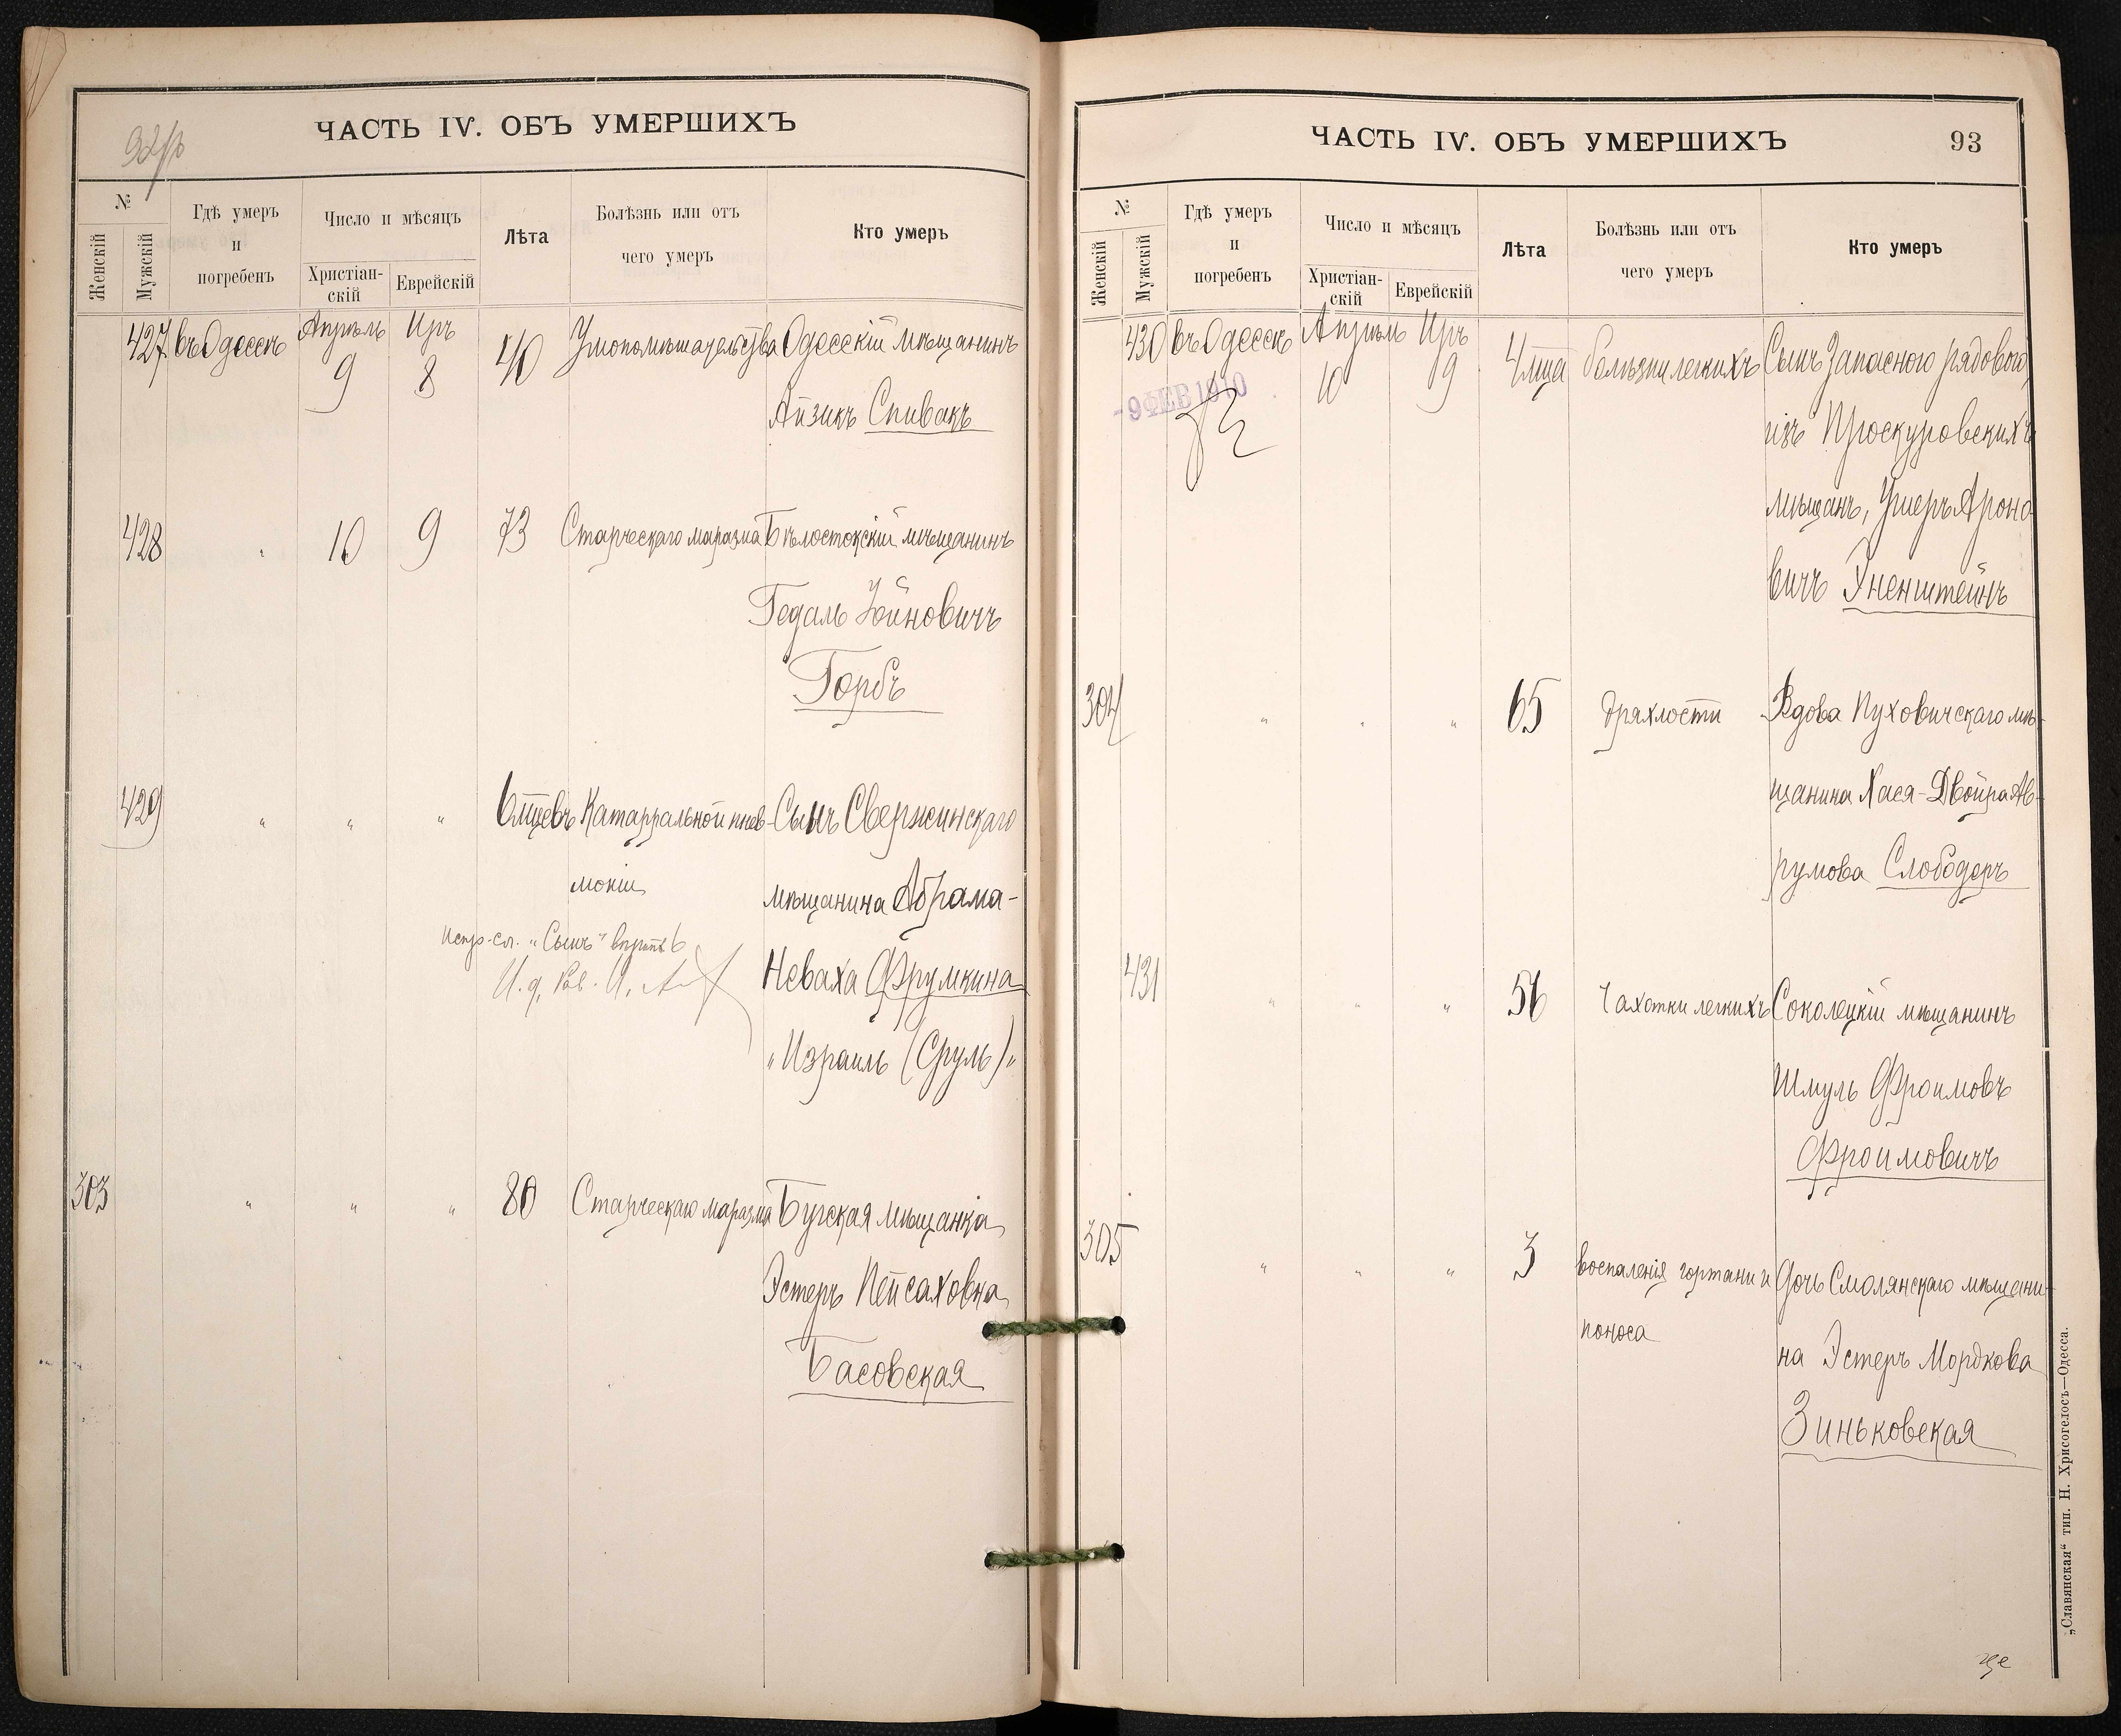 92/об
ЧАСТЬ IV. ОБЪ УМЕРШИХЪ
№
Женскій
Мужскій
Гдѣ умеръ
и
погребенъ
Число и мѣсяцъ
Христіан-
скій
Еврейскій
Лѣта
Болѣзнь или отъ
чего умеръ
Кто умеръ
427 въ Одессѣ Апрѣль Иръ 40 Умопомѣшательства Одесскій мѣщанинъ
9 8
Айзикъ Спивакъ
428 " 10 9 73 Старческаго маразма Бѣлостокскій мѣщанинъ
Гедаль Хаймовичъ
Горбъ
429 " " " 6 мцевъ Катарральной пнев- Сынъ Свержинскаго
моніи
мѣщанина Абрама-
Испр. сл. "Сынъ" вѣрить
Неваха Фрумкина
И. д. Рав.
"Израиль (Сруль)"
303 " " " 80 Старческаго маразма Бугская мѣщанка
Эстеръ Пейсаховна
Басовская
ЧАСТЬ IV. ОБЪ УМЕРШИХЪ
93
№
Женскій
Мужскій
Гдѣ умеръ
и
погребенъ
Число и мѣсяцъ
Христіан-
скій
Еврейскій
Лѣта
Болѣзнь или отъ
чего умеръ
Кто умеръ
430 въ Одессѣ Апрѣль Иръ 4 мца болѣзни легкихъ Сынъ Запасного рядового,
10 9
- 9 ФЕВ 1910
изъ Проскуровскихъ
мѣщанъ, Ушеръ Ароно
вичъ Эненштейнъ
304 " " " 65 дряхлости Вдова Пуховичскаго мѣ-
щанина Хася-Двойра Ав-
румова Слободеръ
431 " " " 56 Чахотки легкихъ Соколецкій мѣщанинъ
Шмуль Фроимовъ
Фроимовичъ
305 " " " 3 воспаленія гортани и Дочь Смолянскаго мѣщани-
поноса
на Эстеръ Мордкова
Зиньковская
„Славянская“ тип. Н. Хрисогелосъ—Одесса.